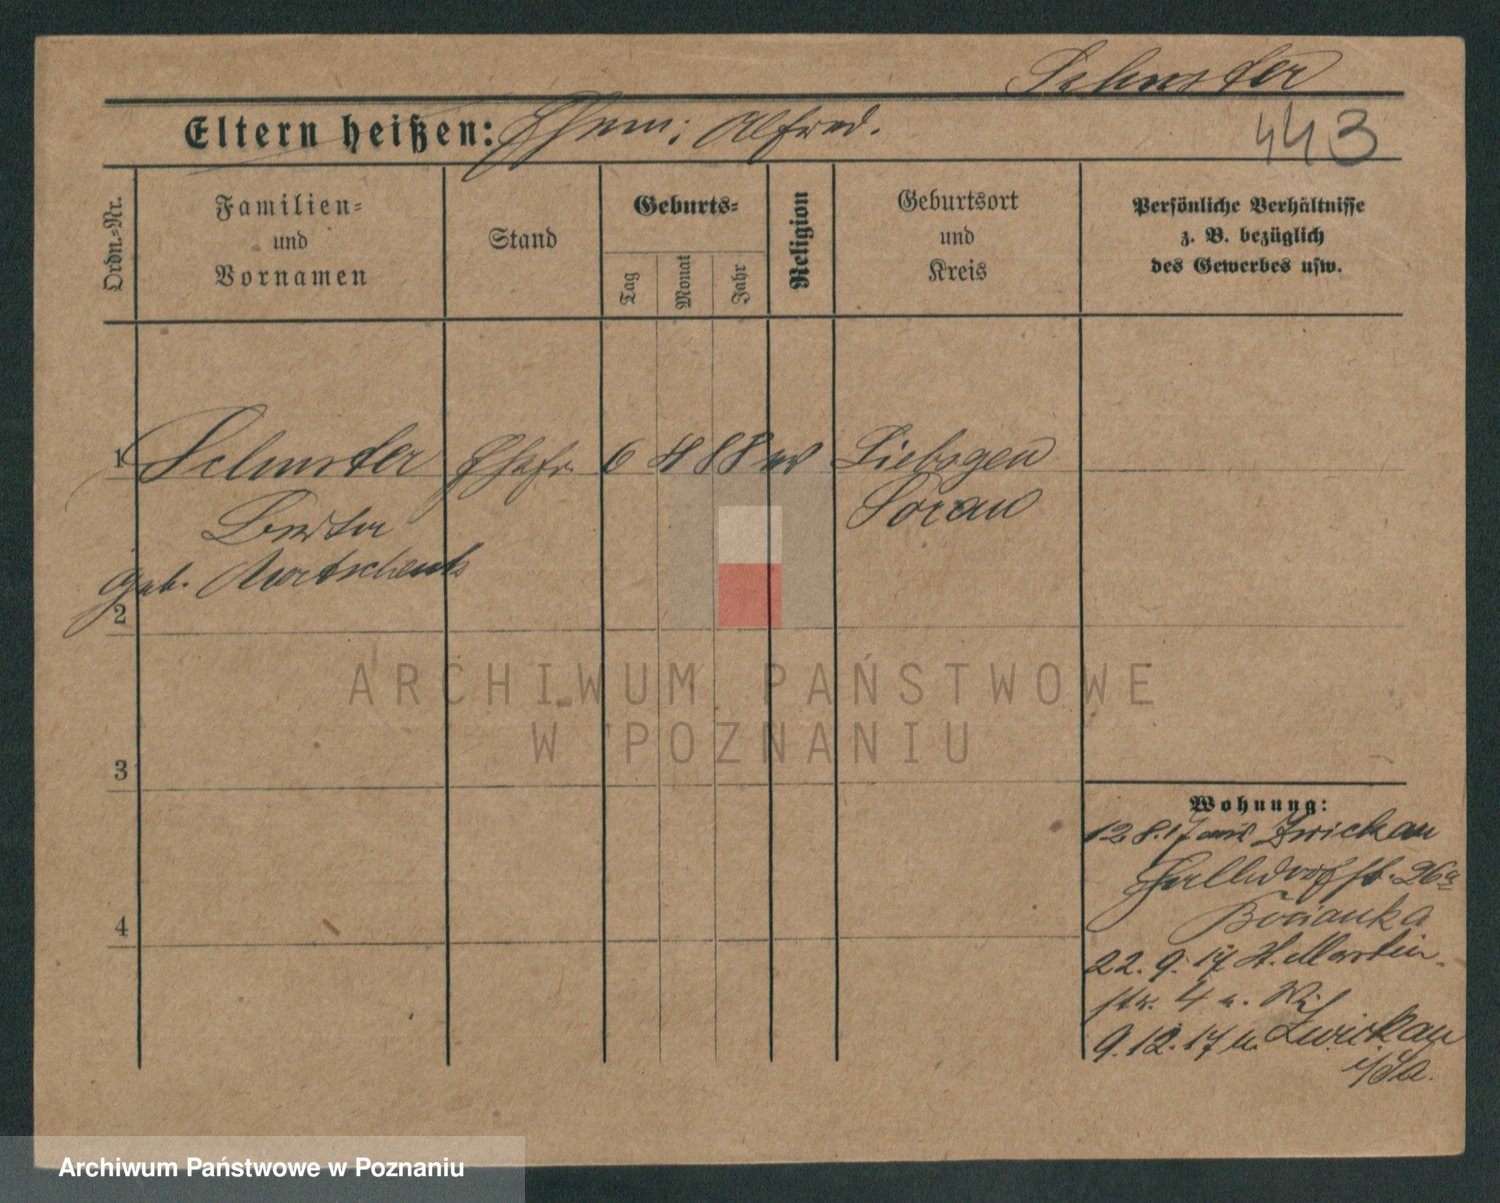 Schuster
443
Eltern heißen: Ehem: Alfred.
Ordn.-Nr.
Familien-
und
Vornamen
Stand
Geburts-
Tag
Monat
Jahr
Religion
Geburtsort
und
Kreis
Persönliche Verhältnisse
z. B. bezüglich
des Gewerbes usw.
1 Schuster Ehefr. 6 4 88 ev Liebsgen
Berta Sorau
geb.
2
ARCHIWUM PAŃSTWOWE
W POZNANIU
3
4
Wohnung:
12 8.17 aus Zwickau
26a
Bocianka
22. 9. 17 St. Martin-
str. 4
9.12.17 n. Zwickau
i/Sa.
Archiwum Państwowe w Poznaniu